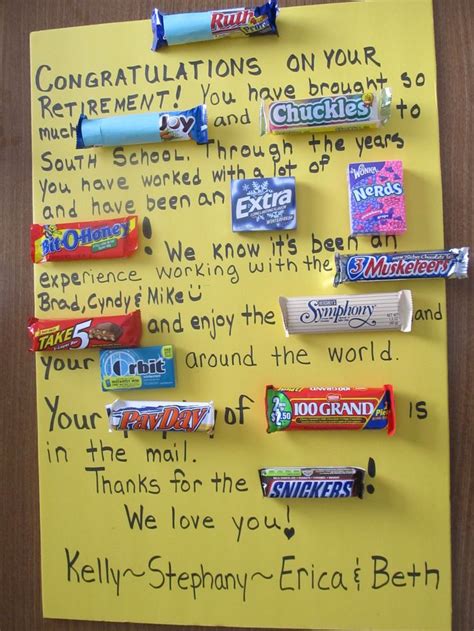 Ruth
CONGRATULATIONS ON YOUR
RETIREMENT! You have brought so
much Joy and Chuckles to
SOUTH SCHOOL. Through the years
you have worked with a lot of WONKA NERDS
and have been an Extra
Bit-O-Honey! We know it's been an
experience working with the 3 Musketeers
Brad, Cyndy & Mike
TAKE 5 and enjoy the HERSHEY'S Symphony and
Your Orbit around the world.
Your PayDay of 100 GRAND is
in the mail.
Thanks for the SNICKERS!
We love you!
Kelly~Stephany~Erica & Beth